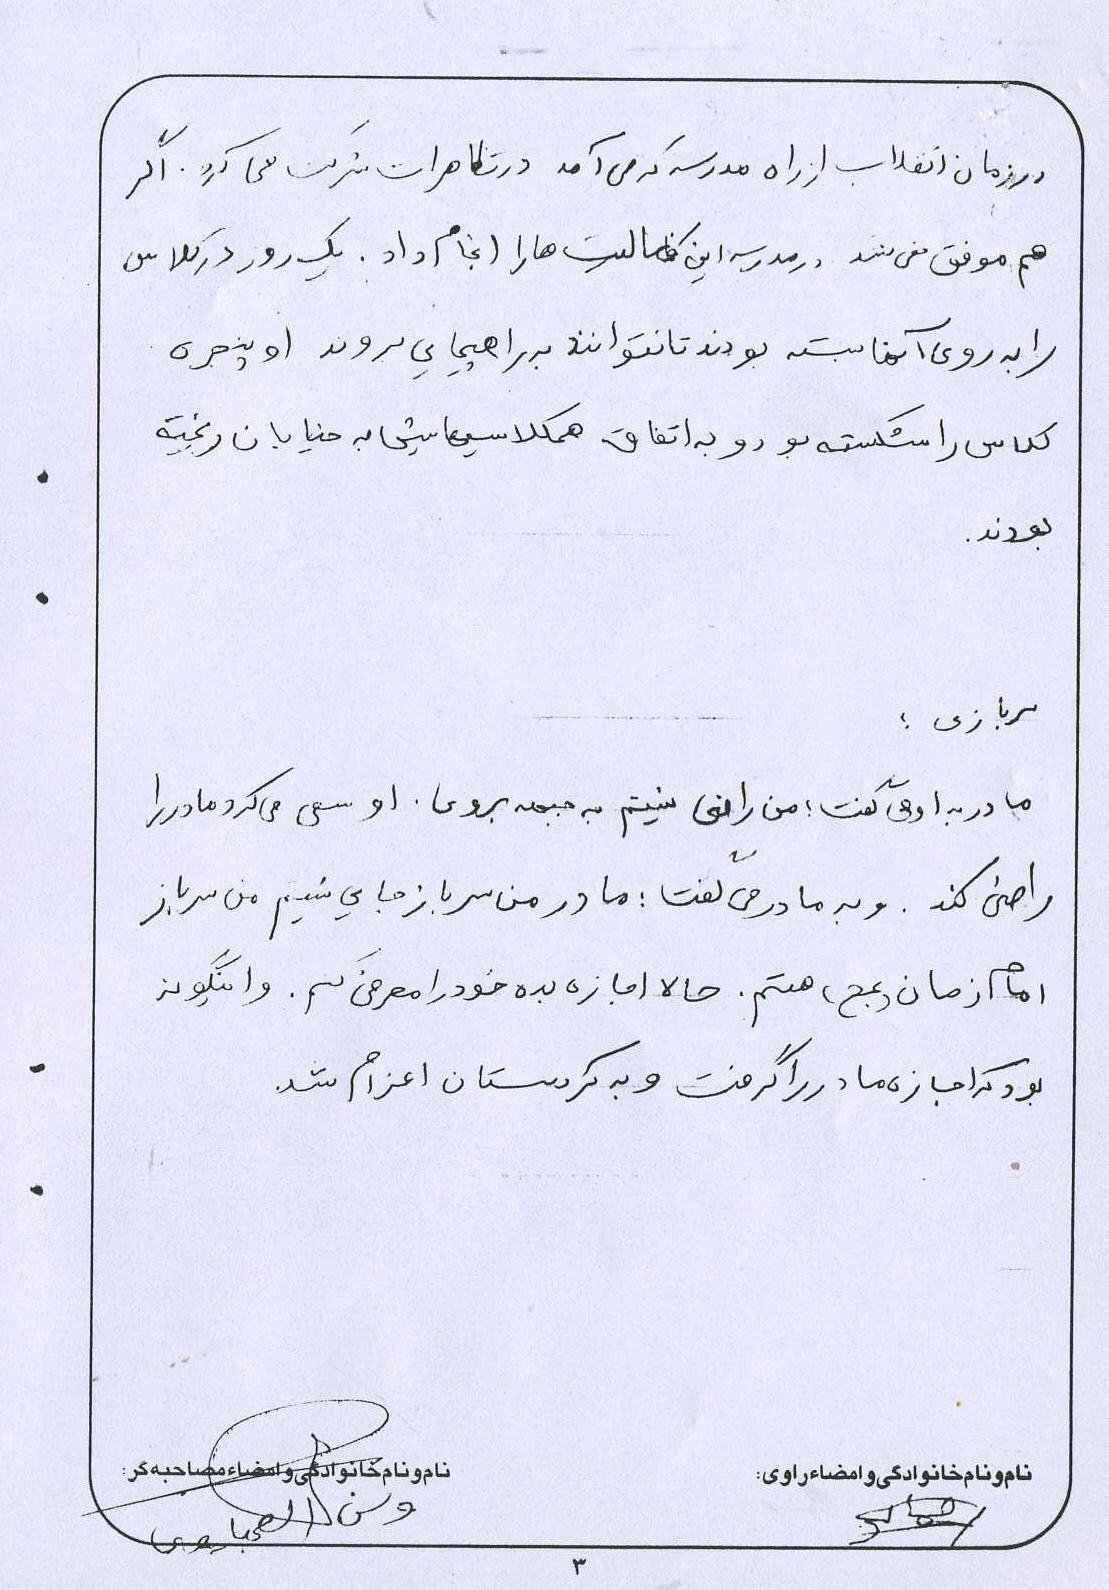 در زمان انقلاب از راه مدرسه که می آمد در تظاهرات شرکت می کرد. اگر
هم موفق نمی شد در مدرسه این فعالیت ها را انجام داد. یک روز در کلاس
را به روی آنها بسته بودند تا نتوانند به راهپیمایی بروند او پنجره
کلاس را شکسته بود و به اتفاق همکلاسیهایش به خیابان ریخته
بودند.
سربازی :
مادر به او می گفت: من راضی نیستم به جبهه بروی. او سعی می کرد مادر را
راضی کند. و به مادر می گفت: مادر من سرباز جایی نیستم من سرباز
امام زمان (عج) هستم. حالا اجازه بده خود را معرفی کنم. و اینگونه
بود که اجازه مادر را گرفت و به کردستان اعزام شد.
نام و نام خانوادگی و امضاء راوی:
نام و نام خانوادگی و امضاء مصاحبه گر:
۳